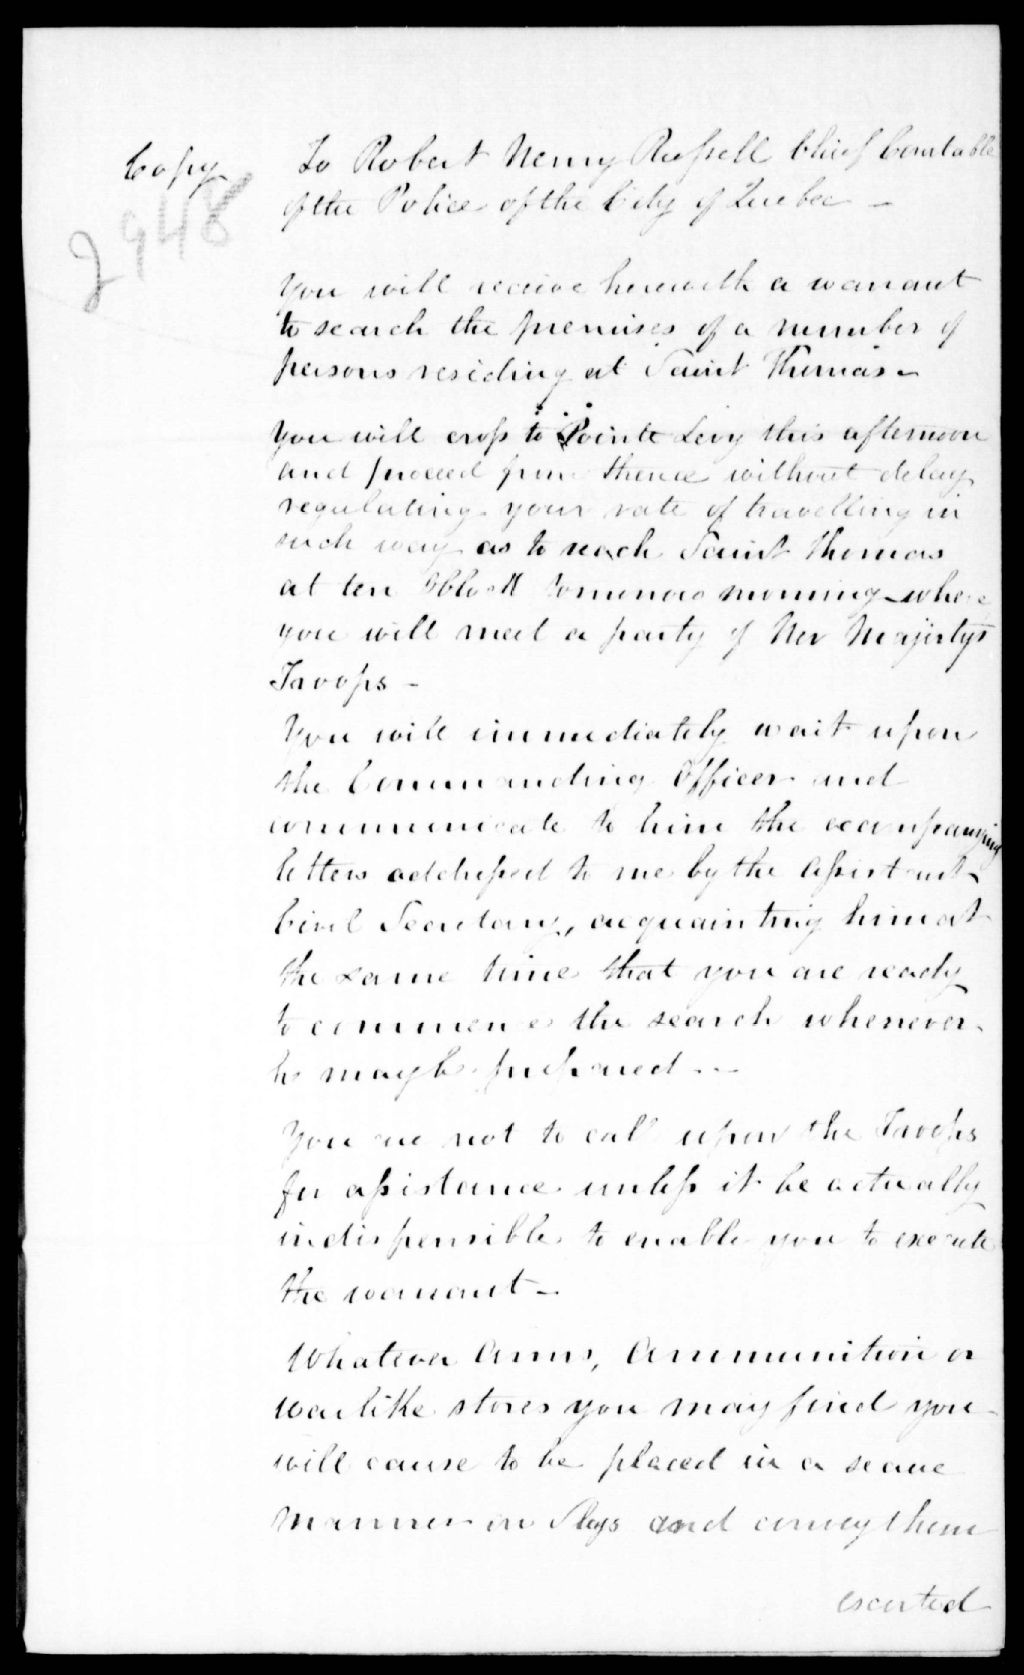 Copy
2948
To Robert Henry Russell Chief Constable
of the Police of the City of Quebec -
You will receive herewith a warrant
to search the premises of a number of
persons residing at Saint Thomas -
You will cross to Pointe Levy this afternoon
and proceed from thence without delay
regulating your rate of travelling in
such way as to reach Saint Thomas
at ten OClock tomorrow morning where
you will meet a party of Her Majesty's
Troops -
You will immediately wait upon
the Commanding Officer and
communicate to him the accompanying
letters addressed to me by the Assistant
Civil Secretary, acquainting him at
the same time that you are ready
to commence the search whenever
he may be prepared --
You are not to call upon the Troops
for assistance unless it be actually
indispensible to enable you to execute
the warrant -
Whatever Arms, Ammunition or
warlike stores you may find you
will cause to be placed in a secure
manner on Slays and convey them
escorted